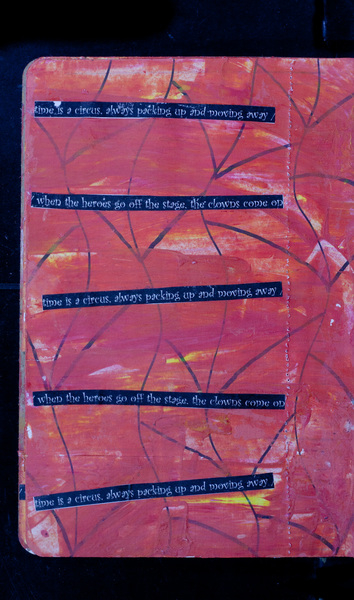 time is a circus, always packing up and moving away /
when the heroes go off the stage, the clowns come on
time is a circus, always packing up and moving away .
when the heroes go off the stage, the clowns come on
time is a circus, always packing up and moving away .